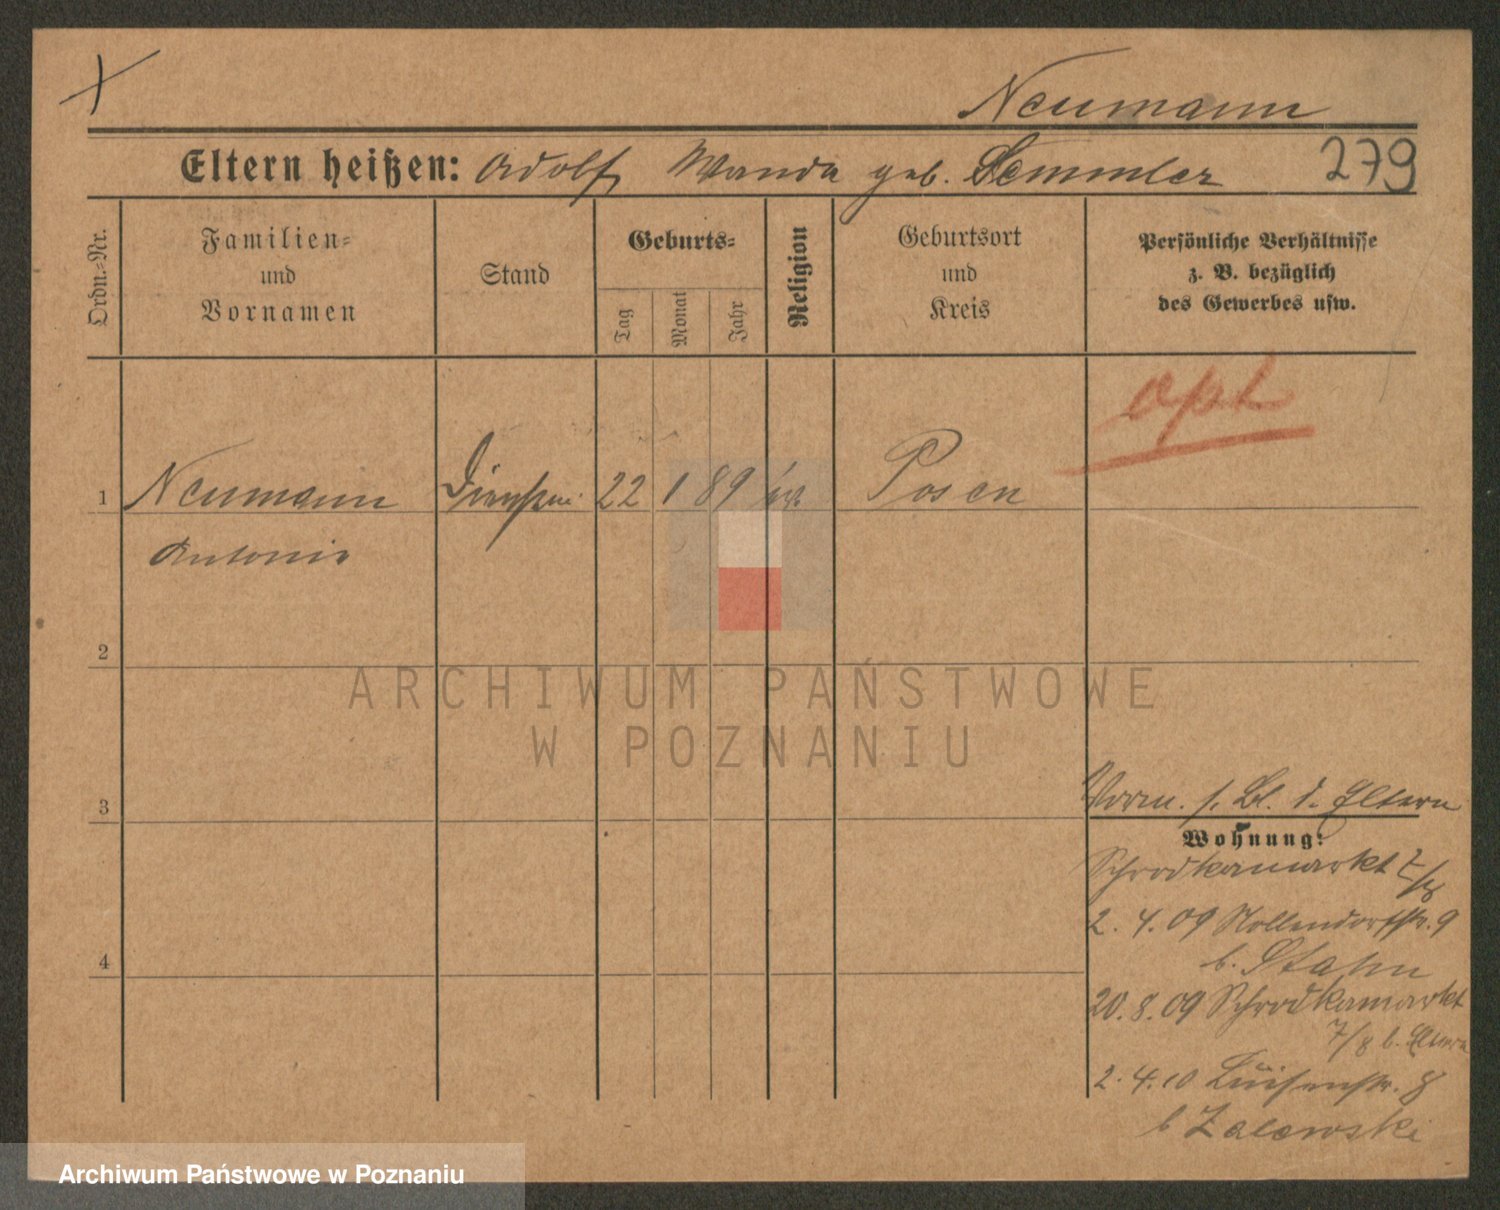 Neumann
Eltern heißen: Adolf, Wanda geb. Semmler 279
Ordn.-Nr.
Familien-
und
Vornamen
Stand
Geburts-
Tag
Monat
Jahr
Religion
Geburtsort
und
Kreis
Persönliche Verhältnisse
z. B. bezüglich
des Gewerbes usw.
1 Neumann 22 1 89 Posen
Antonie
2
3
4
Vorm. s. Bl. d. Eltern
Wohnung:
Schrodkamarkt 7/8
2.4.09 Nollendorfstr. 9
b. Stahn
20.8.09 Schrodkamarkt
7/8 b. Eltern
2.4.10 Luisenstr. 8
b Zalewski
ARCHIWUM PAŃSTWOWE
W POZNANIU
Archiwum Państwowe w Poznaniu